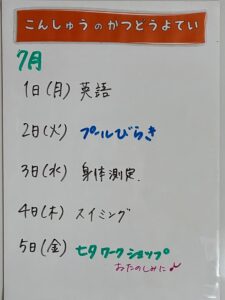 こんしゅうのかつどうよてい
7月
1日(月) 英語
2日(火) プールびらき
3日(水) 身体測定.
4日(木) スイミング
5日(金) 七夕ワークショップ
おたのしみに♪